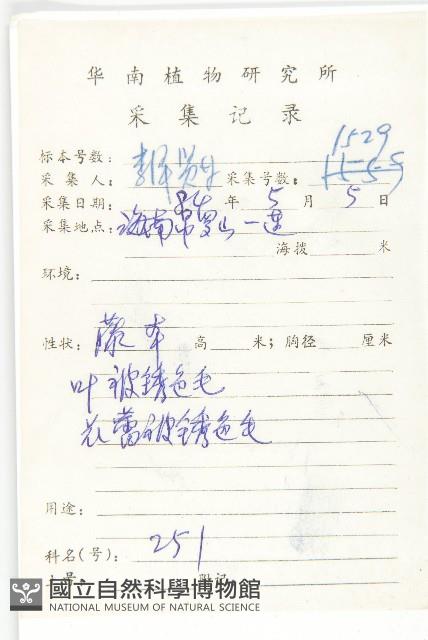 华南植物研究所
采集记录
1529
标本号数：
采集人：李泽贤 采集号数：1559
采集日期： 年 5 月 5 日
采集地点：海南吊罗山一连
海拨 米
环境：
性状：藤本 高 米；胸径 厘米
叶被锈色毛
花蕾被锈色毛
用途：
科名(号)：251
國立自然科學博物館
NATIONAL MUSEUM OF NATURAL SCIENCE